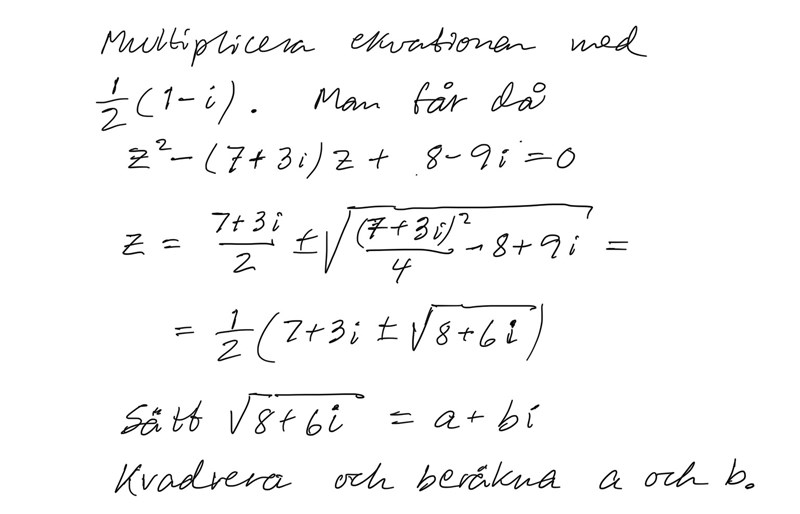 Multiplicera ekvationen med
1/2 (1-i). Man får då
z² - (7+3i)z + 8-9i = 0
z = (7+3i)/2 ± √((7+3i)²/4 - 8+9i) =
= 1/2 (7+3i ± √(8+6i))
Sätt √(8+6i) = a+bi
Kvadrera och beräkna a och b.